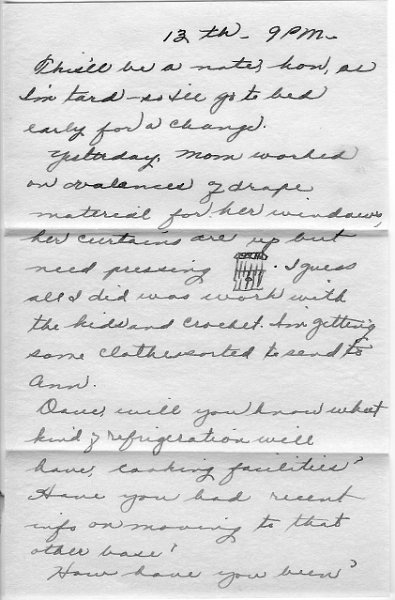 13 th - 9 P.M.
This'll be a note, hon, as
I'm tard - so I'll go to bed
early for a change.
Yesterday, Mom worked
on valances of drape
material for her windows,
her curtains are up but
need pressing. I guess
all I did was work with
the kids and crochet. Im getting
some clothes sorted to send to
Ann.
Dave, will you know what
kind of refrigeration will
have, cooking facilities?
Have you had recent
info on moving to that
other base?
How have you been?